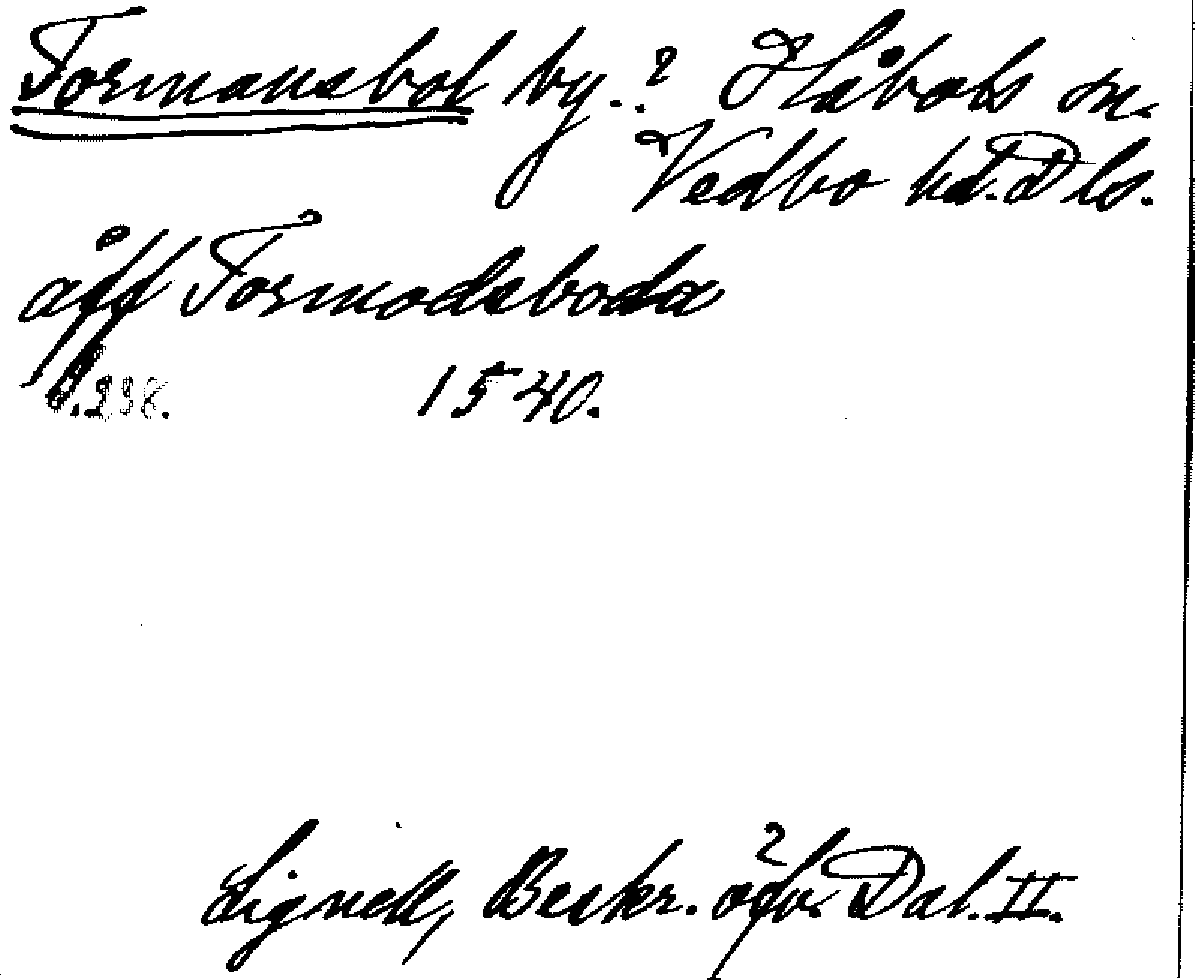 Tormansbol by.? Håbols sn.
Vedbo hd. Dls.
åff Tormodsboda
s. 238. 1540.
Lignell, Beskr. öfv. Dal. II.